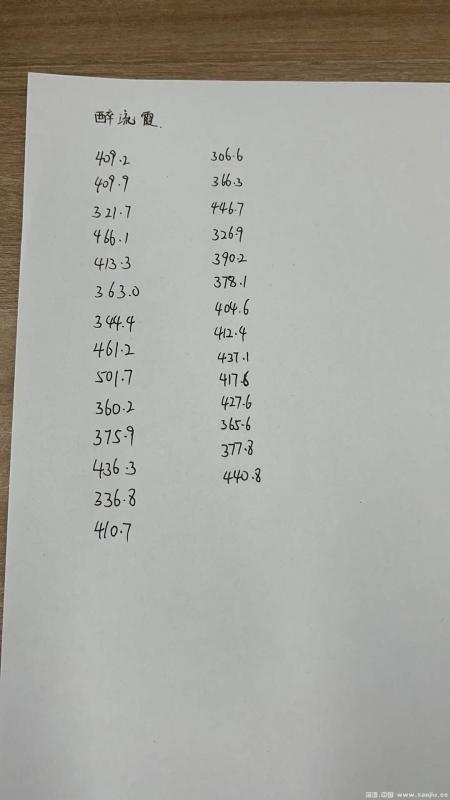 醉流霞.
409.2
409.9
321.7
466.1
413.3
363.0
344.4
461.2
501.7
360.2
375.9
436.3
336.8
410.7
306.6
366.3
446.7
326.9
390.2
378.1
404.6
412.4
437.1
417.6
427.6
365.6
377.8
440.8